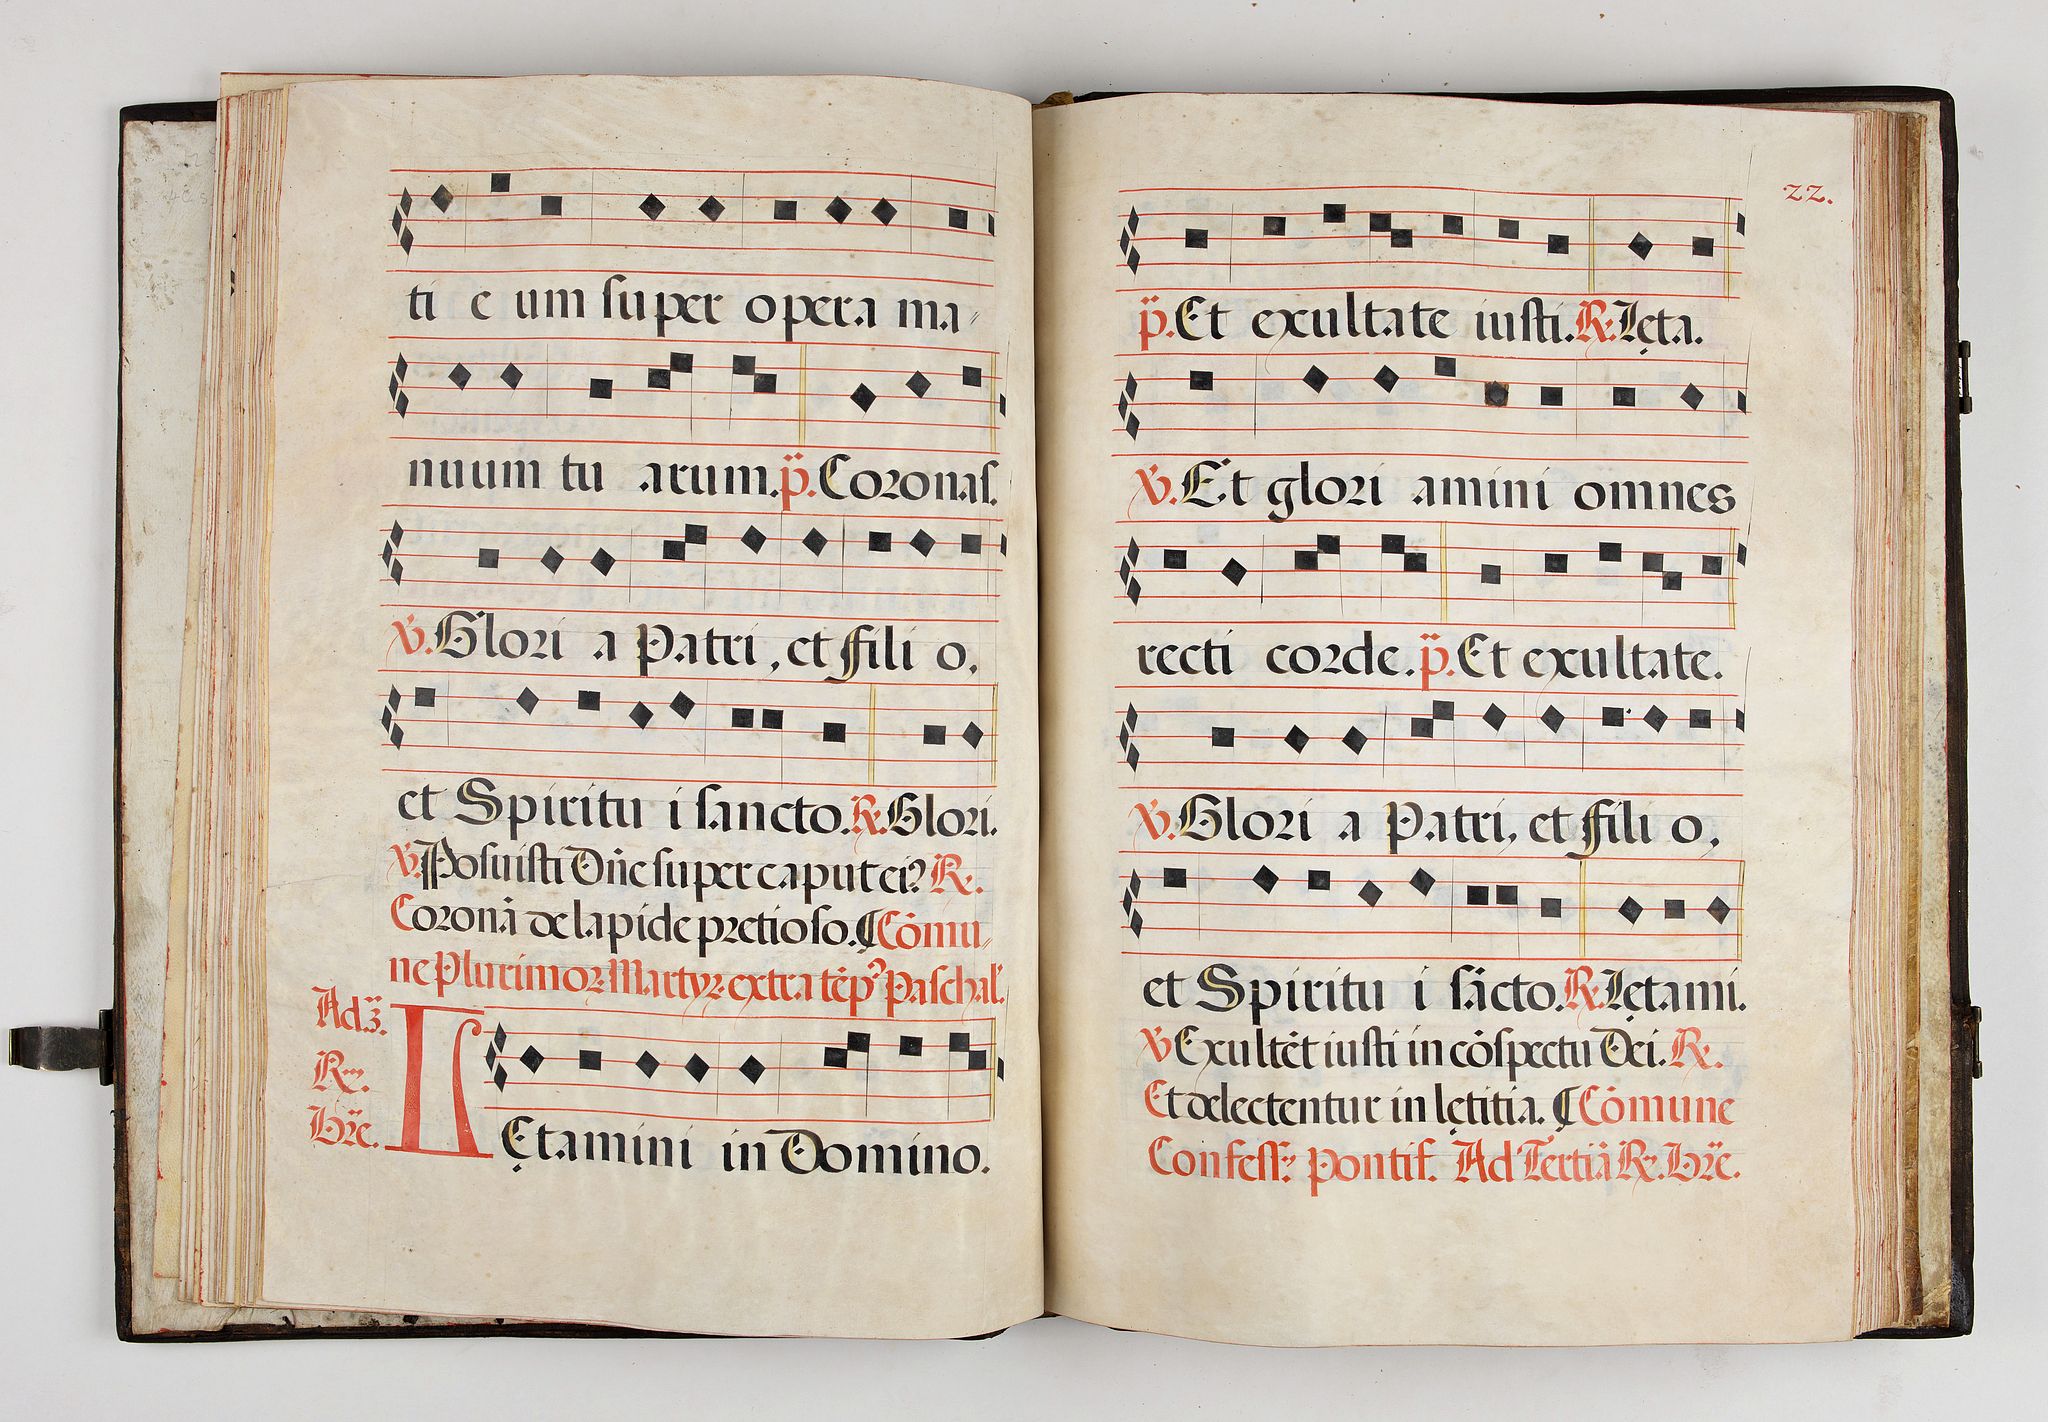 ti e um super opera ma-
nuum tu arum. p̈. Coronas.
℣. Glori a Patri, et fili o,
et Spiritu i sancto. ℟. Glori.
℣. Posuisti Dñe super caput ei? ℟.
Coronā de lapide pretioso. ¶ Cōmu-
ne Plurimoꝝ Martyꝝ extra tēp? Paschal.
Ad 3.
℟.
br̄e.
LEtamini in Domino.
22.
p̈. Et exultate iusti. ℟. Lęta.
℣. Et glori amini omnes
recti corde. p̈. Et exultate.
℣. Glori a Patri, et fili o,
et Spiritu i sācto. ℟. Lętami.
℣ Exultēt iusti in cōspectu Dei. ℟.
Et delectentur in lętitia. ¶ Cōmune
Confess. pontif. Ad Tertiā ℟. br̄e.